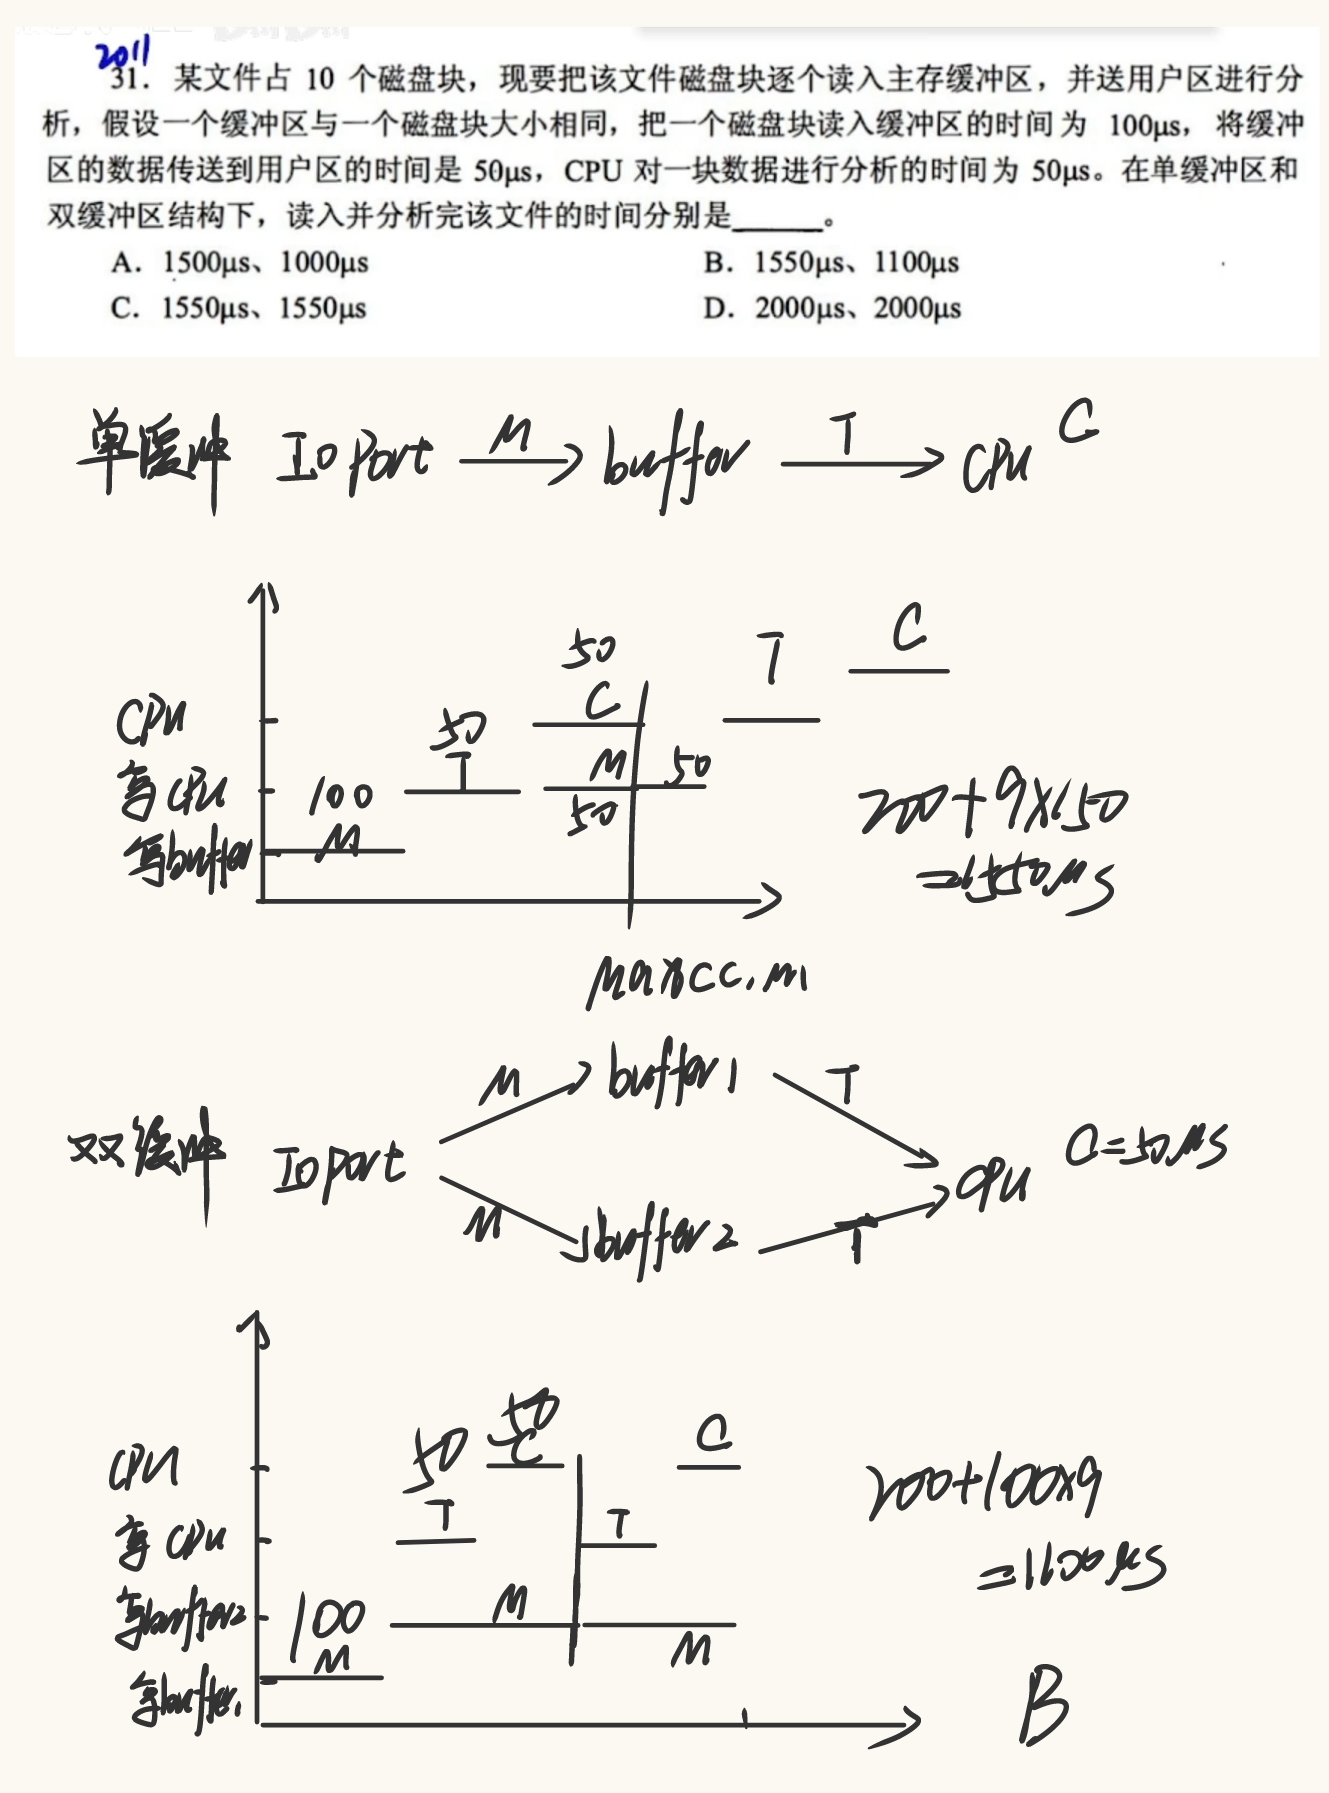 2011
31. 某文件占 10 个磁盘块，现要把该文件磁盘块逐个读入主存缓冲区，并送用户区进行分
析，假设一个缓冲区与一个磁盘块大小相同，把一个磁盘块读入缓冲区的时间为 100μs，将缓冲
区的数据传送到用户区的时间是 50μs，CPU 对一块数据进行分析的时间为 50μs。在单缓冲区和
双缓冲区结构下，读入并分析完该文件的时间分别是______。
A. 1500μs、1000μs
B. 1550μs、1100μs
C. 1550μs、1550μs
D. 2000μs、2000μs
单缓冲 IO Port M buffer T CPU C
50 T C
CPU 50 C
写CPU 100 T M 50
写buffer M 50
200+9×150
=1550μs
Max(C,M)
双缓冲 IO port M buffer1 T CPU C=50μs
M buffer2 T
50 50 C
CPU C
写CPU T T
写buffer2 100 M M
写buffer1 M
200+100×9
=1100μs
B